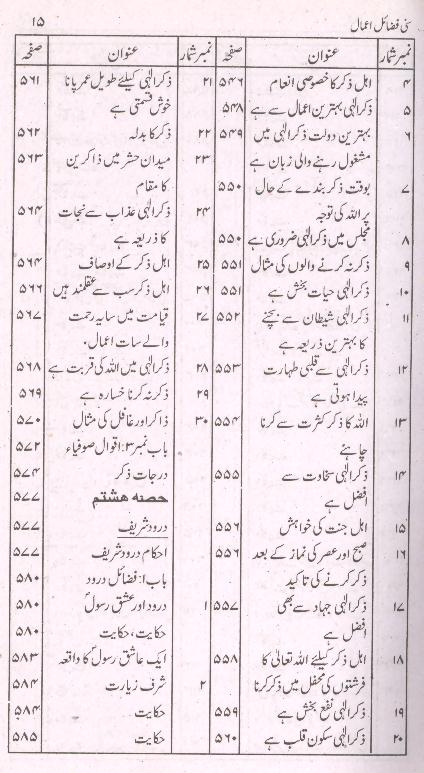 سنی فضائل اعمال ۱۵
نمبر شمار عنوان صفحہ
۴ اہل ذکر کا خصوصی انعام ۵۴۶
۵ ذکر الٰہی بہترین اعمال سے ہے ۵۴۸
۶ بہترین دولت ذکر الٰہی میں ۵۴۹
مشغول رہنے والی زبان ہے
۷ بوقت ذکر بندے کے حال ۵۵۰
پر اللہ کی توجہ
۸ مجلس میں ذکر الٰہی ضروری ہے ۵۵۰
۹ ذکر نہ کرنے والوں کی مثال ۵۵۱
۱۰ ذکر الٰہی حیات بخش ہے ۵۵۱
۱۱ ذکر الٰہی شیطان سے بچنے ۵۵۲
کا بہترین ذریعہ ہے
۱۲ ذکر الٰہی سے قلبی طہارت ۵۵۳
پیدا ہوتی ہے
۱۳ اللہ کا ذکر کثرت سے کرنا ۵۵۴
چاہئے
۱۴ ذکر الٰہی سخاوت سے ۵۵۵
افضل ہے
۱۵ اہل جنت کی خواہش ۵۵۶
۱۶ صبح اور عصر کی نماز کے بعد ۵۵۶
ذکر کرنے کی تاکید
۱۷ ذکر الٰہی جہاد سے بھی ۵۵۷
افضل ہے
۱۸ اہل ذکر کیلئے اللہ تعالیٰ کا ۵۵۸
فرشتوں کی محفل میں ذکر کرنا
۱۹ ذکر الٰہی نفع بخش ہے ۵۵۹
۲۰ ذکر الٰہی سکون قلب ہے ۵۶۰
نمبر شمار عنوان صفحہ
۲۱ ذکر الٰہی کیلئے طویل عمر پانا ۵۶۱
خوش قسمتی ہے
۲۲ ذکر کا بدلہ ۵۶۲
۲۳ میدان حشر میں ذاکرین ۵۶۳
کا مقام
۲۴ ذکر الٰہی عذاب سے نجات ۵۶۴
کا ذریعہ ہے
۲۵ اہل ذکر کے اوصاف ۵۶۴
۲۶ اہل ذکر سب سے عقلمند ہیں ۵۶۶
۲۷ قیامت میں سایہ رحمت ۵۶۷
والے سات اعمال۔
۲۸ ذکر الٰہی میں اللہ کی قربت ہے ۵۶۸
۲۹ ذکر نہ کرنا خسارہ ہے ۵۶۹
۳۰ ذاکر اور غافل کی مثال ۵۷۰
باب نمبر ۳: اقوال صوفیاء ۵۷۲
درجات ذکر ۵۷۴
حصہ ہشتم ۵۷۷
درود شریف ۵۷۷
احکام درود شریف ۵۷۷
باب ا: فضائل درود ۵۸۰
۱ درود اور عشق رسولؐ ۵۸۰
حکایت، حکایت ۵۸۰
ایک عاشق رسولؐ کا واقعہ ۵۸۳
۲ شرف زیارت ۵۸۴
حکایت ۵۸۴
حکایت ۵۸۵